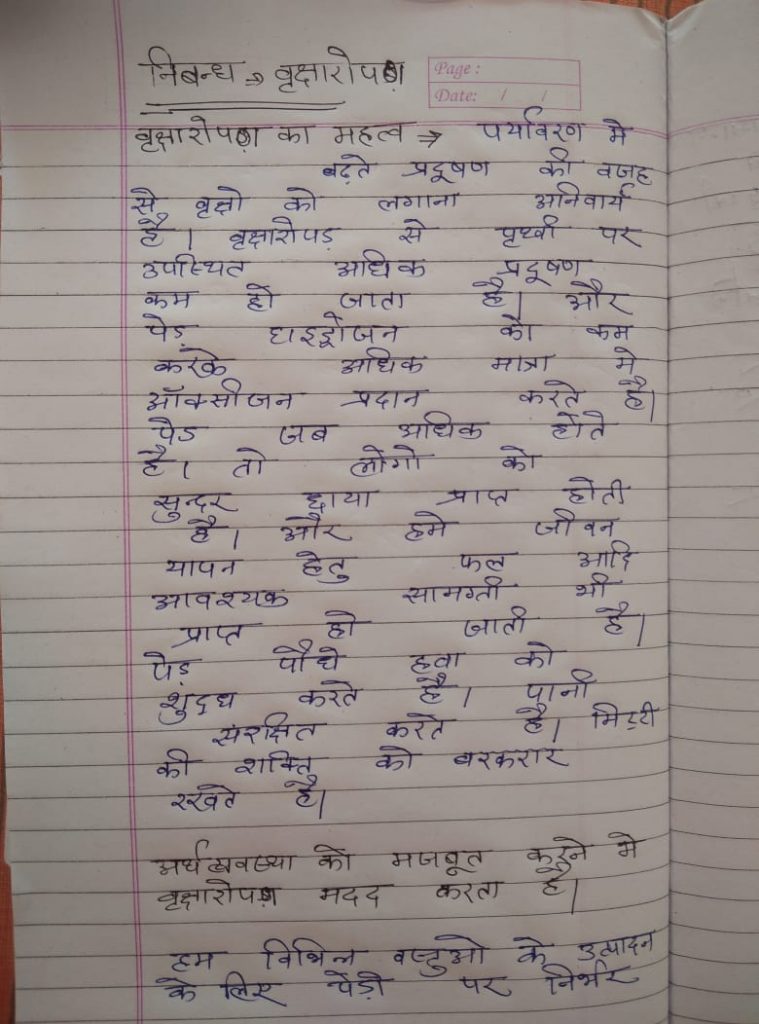 निबन्ध → वृक्षारोपण
Page :
Date: / /
वृक्षारोपण का महत्व ⇒ पर्यावरण मे
बढ़ते प्रदूषण की वजह
से वृक्षो को लगाना अनिवार्य
है। वृक्षारोपड़ से पृथ्वी पर
उपस्थित अधिक प्रदूषण
कम हो जाता है। और
पेड़ हाइड्रोजन को कम
करके अधिक मात्रा मे
ऑक्सीजन प्रदान करते है।
पेड जब अधिक होते
है। तो लोगो को
सुन्दर छाया प्राप्त होती
है। और हमे जीवन
यापन हेतु फल आदि
आवश्यक सामग्ती भी
प्राप्त हो जाती है।
पेड़ पौधे हवा को
शुद्ध करते है। पानी
संरक्षित करते है। मिट्टी
की शक्ति को बरकरार
रखते है।
अर्थव्यवस्था को मजबूत करने मे
वृक्षारोपण मदद करता है।
हम विभिल वस्तुओ के उत्पादन
के लिए पेड़ो पर निर्भर